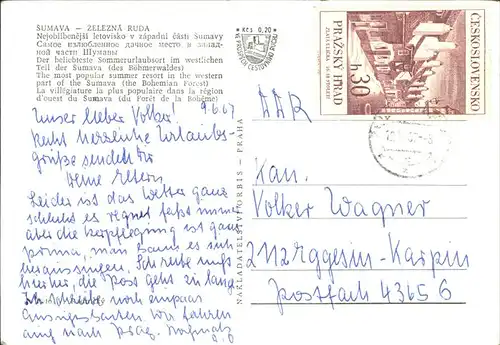 ŠUMAVA – ŽELEZNÁ RUDA
Nejoblíbenější letovisko v západní části Šumavy
Самое излюбленное дачное место в запад-
ной части Шумавы
Der beliebteste Sommerurlaubsort im westlichen
Teil der Šumava (des Böhmerwaldes)
The most popular summer resort in the western
part of the Šumava (the Bohemian Forest)
La villégiature la plus populaire dans la région
d'ouest du Šumava (du Forêt de la Bohême)
Kčs 0,20
ČESKOSLOVENSKO
PRAŽSKÝ HRAD
ZLATÁ ULIČKA
h 30
NAKLADATELSTVÍ ORBIS – PRAHA
9.6.67
Unser lieber Volker!
Recht herzliche Urlaubs-
grüße senden Dir
Deine Eltern
Leider ist das Wetter ganz
schlecht es regnet fast immer
aber die Verpflegung ist ganz
prima, man kann es sich
hier, die Post geht zu lange
Ich schreibe noch ein paar
Ansichtskarten wir fahren
nach Prag. Nochmals
DDR
Kan.
Volker Wagner
2112 Eggesin-Karpin
Postfach 43656